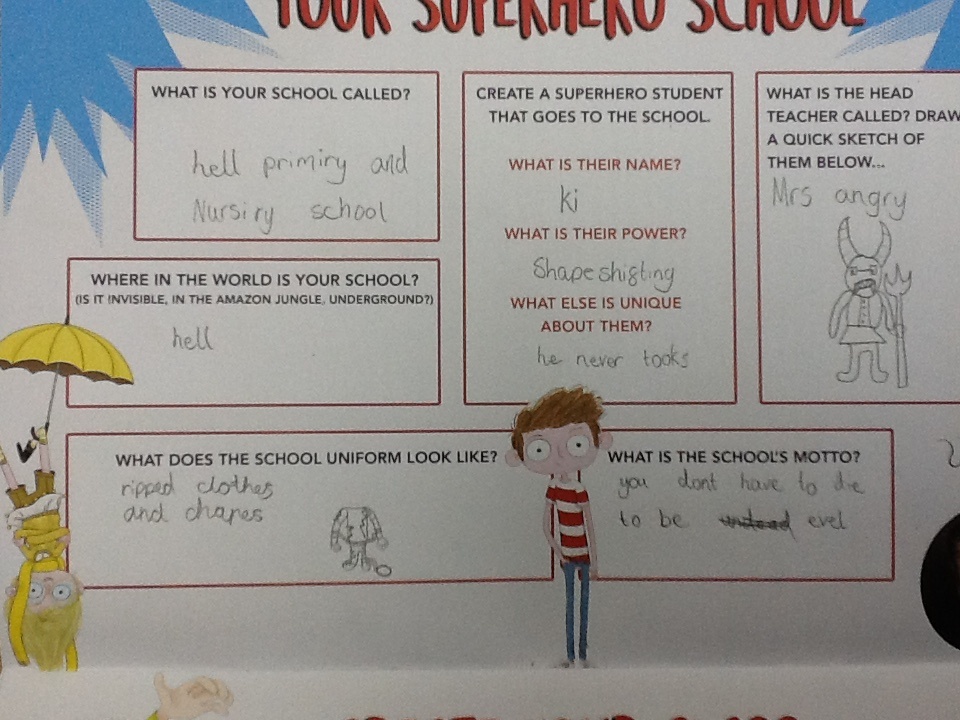 YOUR SUPERHERO SCHOOL
WHAT IS YOUR SCHOOL CALLED?
hell primiry and
Nursiry school
WHERE IN THE WORLD IS YOUR SCHOOL?
(IS IT INVISIBLE, IN THE AMAZON JUNGLE, UNDERGROUND?)
hell
CREATE A SUPERHERO STUDENT
THAT GOES TO THE SCHOOL.
WHAT IS THEIR NAME?
ki
WHAT IS THEIR POWER?
Shapeshigting
WHAT ELSE IS UNIQUE
ABOUT THEM?
he never tooks
WHAT IS THE HEAD
TEACHER CALLED? DRAW
A QUICK SKETCH OF
THEM BELOW...
Mrs angry
WHAT DOES THE SCHOOL UNIFORM LOOK LIKE?
ripped clothes
and chapes
WHAT IS THE SCHOOL'S MOTTO?
you dont have to die
to be undead evel